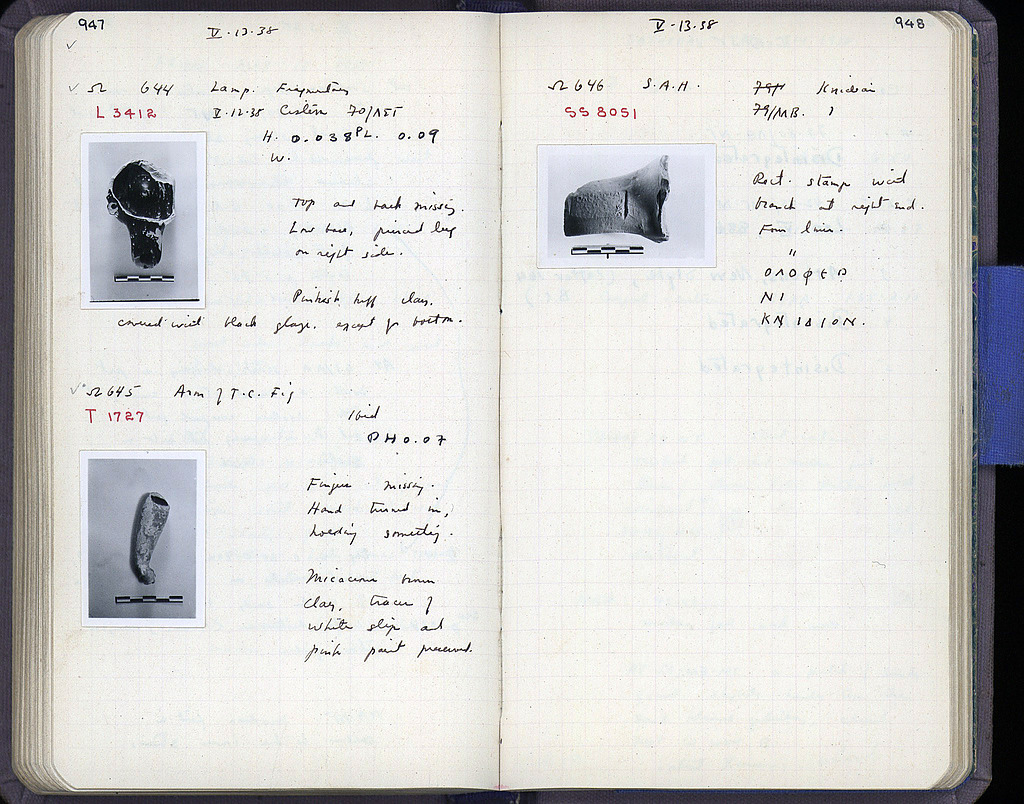 947
V-13-38
Ω 644 Lamp. Fragmentary
L 3412 V-12-38 Cistern 70/ΛΣΤ
H. 0.038 PL. 0.09
W.
Top and back missing.
Low base, pierced lug
on right side.
Pinkish buff clay.
covered with black glaze. except for bottom.
Ω 645 Arm of T.C. Fig
T 1727 Ibid
PH 0.07
Fingers missing.
Hand turned in,
holding something.
Micaceous brown
clay, traces of
white slip and
pink paint preserved.
V-13-38
948
Ω 646 S.A.H. Knidian
SS 8051 79/MB. 1
Rect. stamp with
branch at right end.
Four lines.
"
ΟΛΟΦΕΡ
ΝΙ
ΚΝΙΔΙΟΝ.